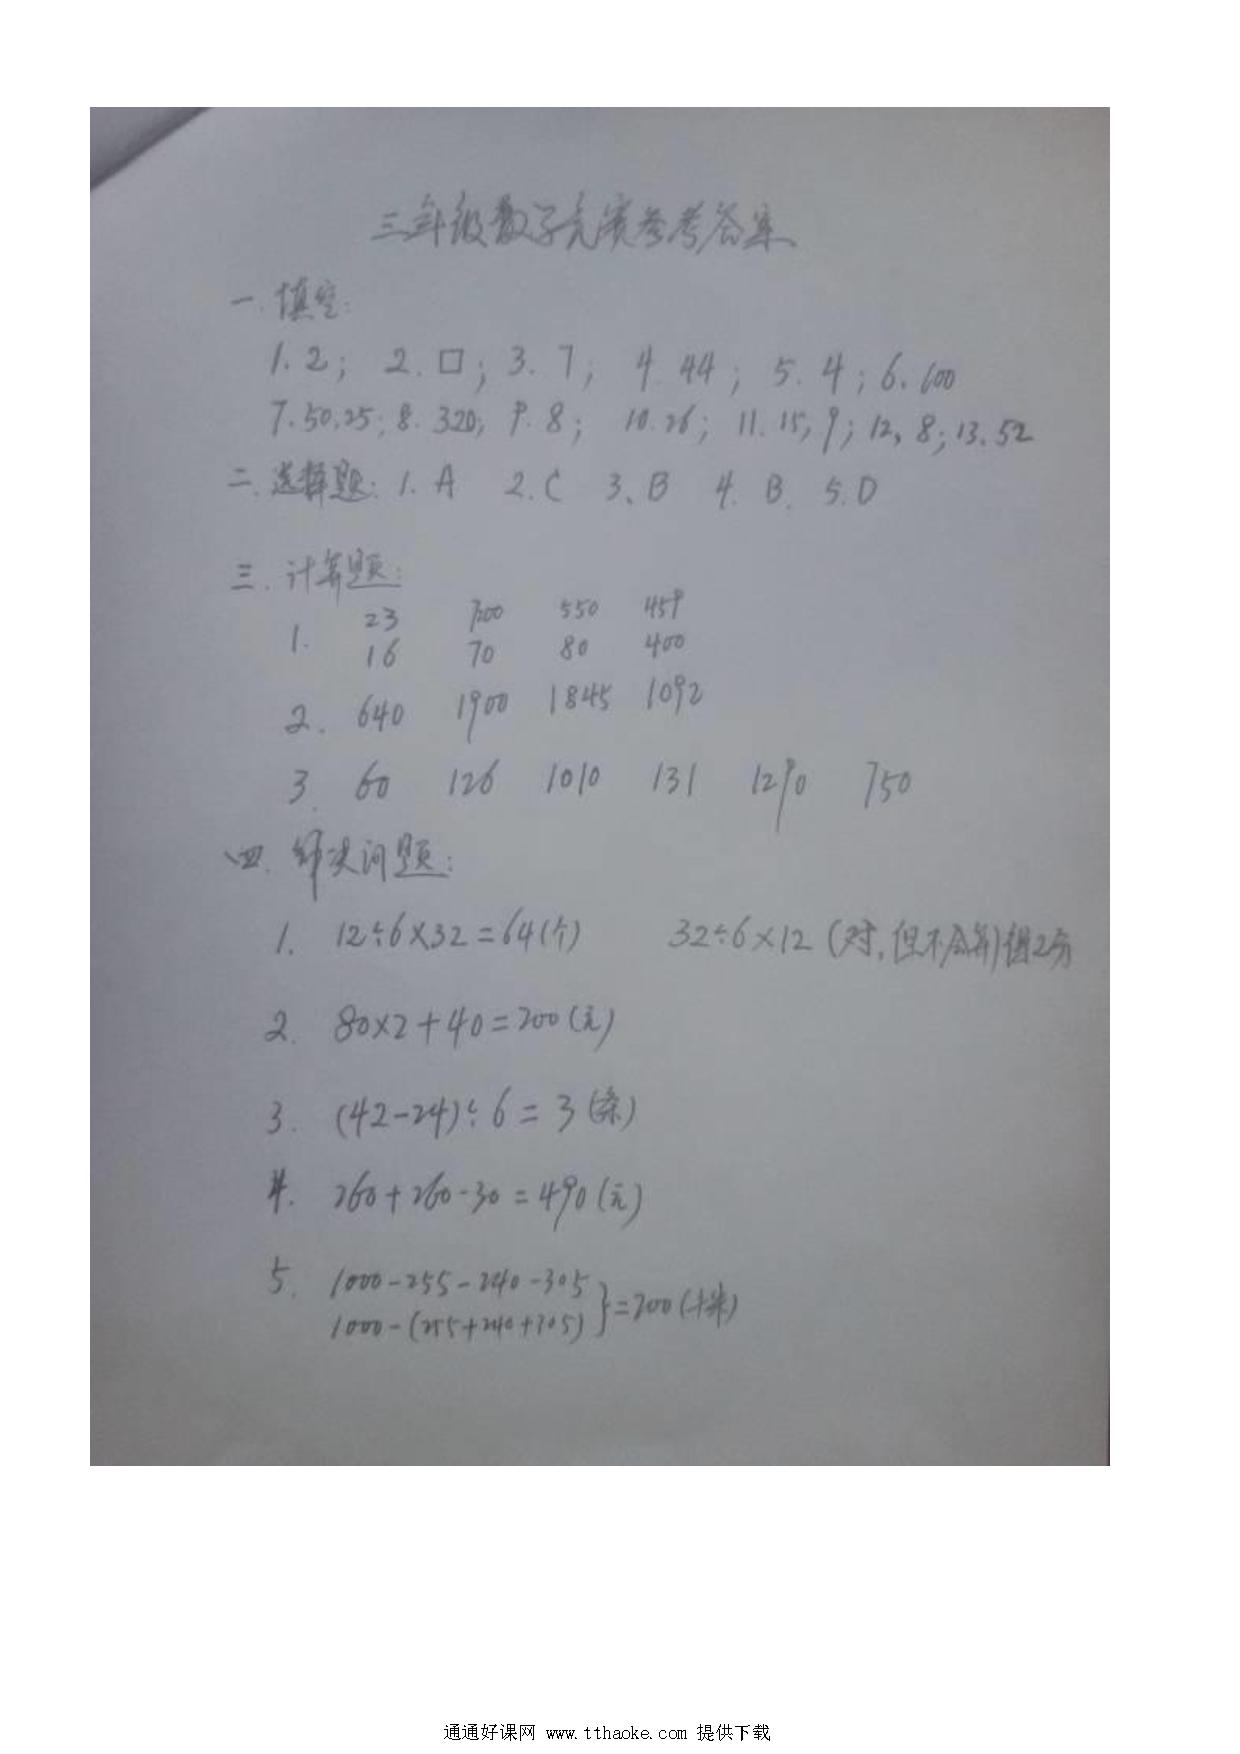 三年级数学竞赛参考答案
一.填空:
1.2; 2.口; 3.7; 4.44; 5.4; 6.600
7.50,25; 8.320; 9.8; 10.26; 11.15,9; 12,8; 13.52
二.选择题: 1.A 2.C 3、B 4.B. 5.D
三.计算题:
1. 23 700 550 459
16 70 80 400
2. 640 1900 1845 1092
3. 60 126 1010 131 1290 750
四.解决问题:
1. 12÷6×32=64(个) 32÷6×12(对,但不合算)得2分
2. 80×2+40=200(元)
3. (42-24)÷6=3(条)
4. 260+260-30=490(元)
5. 1000-255-240-305
1000-(255+240+305) }=200(千米)
通通好课网 www.tthaoke.com 提供下载